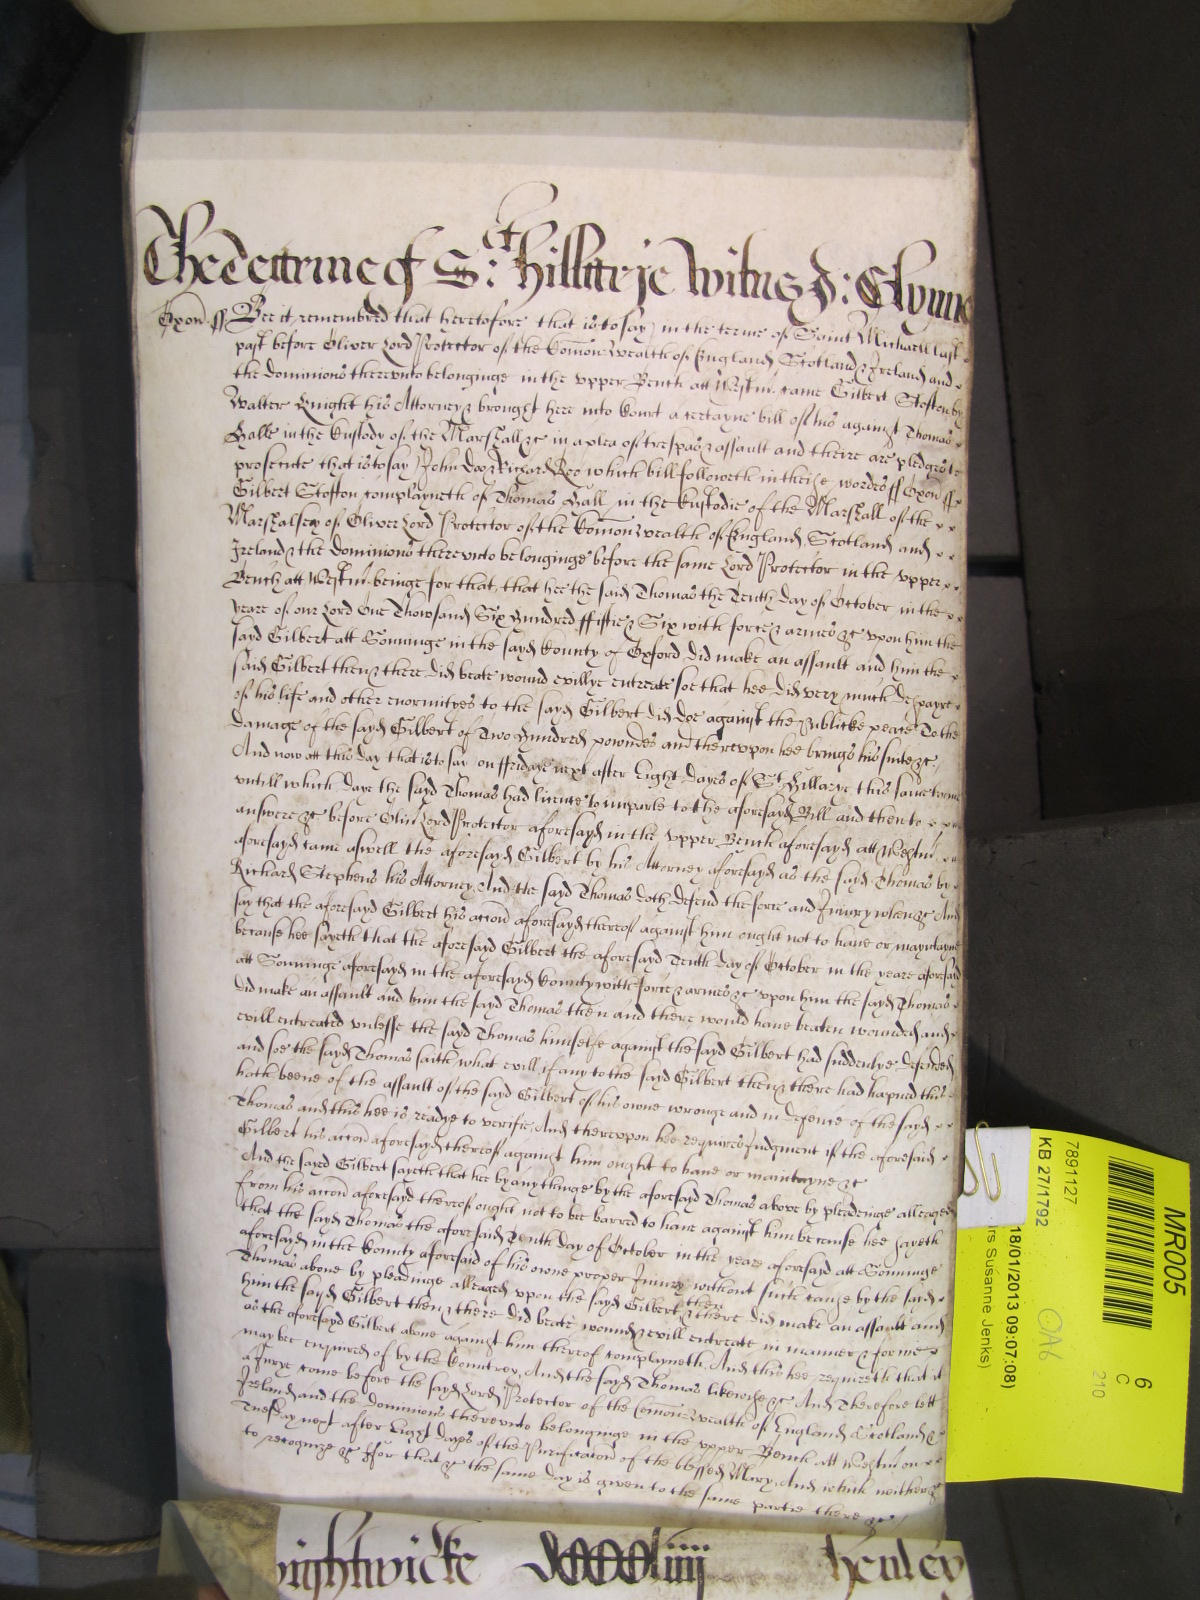 The terme of St: Hillarje Witnes J: Glynne
Oxon ss Bee it remembred that heretofore that is to say in the terme of Saint Michaell last
past before Oliver Lord Protector of the Com̄on Wealth of England Scotland & Ireland and
the dominions thereunto belonginge in the upper Bench att Westm̄ came Gilbert Stofton by
Walter Knight his Attorney & brought here into Court a certayne bill of his against Thomas
Hall in the Custody of the Marshall &c in a plea of trespas & assault and theire are pledges to
prosecute that is to say John Doo & Richard Roo which bill followeth in theise wordes ss Oxon ss
Gilbert Stofton complayneth of Thomas Hall in the Custodie of the Marshall of the
Marshalsey of Oliver Lord Protector of the Com̄on Wealth of England Scotland and
Ireland & the dominions thereunto belonginge before the same Lord Protector in the upper
Bench att Westm̄ beinge for that, that hee the said Thomas the Tenth day of October in the
yeare of our Lord One Thowsand Six Hundred ffiftie & Six with force & armes &c upon him the
said Gilbert att Sonninge in the sayd County of Oxford did make an assault and him the
said Gilbert then & there did beate wound evillye entreate soe that hee did very much despayre
of his life and other enormityes to the sayd Gilbert did doe against the Publicke peace To the
damage of the sayd Gilbert of Two Hundred poundes and thereuppon hee brings his suite &c
And now att this day that is to say on ffridaye next after Eight dayes of St. Hillarye this same terme
untill which daye the sayd Thomas had licence to imparle to the aforesayd Bill and then to
answere &c before Oliv̄ Lord Protector aforesayd in the upper Bench aforesayd att Westm̄
aforesayd came aswell the aforesayd Gilbert by his Attorney aforesayd as the sayd Thomas by
Richard Stephens his Attorney And the sayd Thomas doth defend the force and Injury when &c And
say that the aforesayd Gilbert his accōn aforesayd thereof against him ought not to have or mayntayne
because hee sayeth that the aforesayd Gilbert the aforesayd Tenth day of October in the yeare aforesayd
att Sonninge aforesayd in the aforesayd County with force & armes &c upon him the sayd Thomas
did make an assault and him the sayd Thomas then and there would have beaten wounded and
evill entreated unlesse the sayd Thomas himselfe against the sayd Gilbert had suddenlye defended
and soe the sayd Thomas saith, what evill if any to the sayd Gilbert then & there had hapned this
hath beene of the assault of the sayd Gilbert of his owne wronge and in defence of the sayd
Thomas and this hee is readye to verifie, And thereupon hee requires Judgment if the aforesaid
Gilbert his accōn aforesayd thereof against him ought to have or maintayne &c
And the sayed Gilbert sayeth that hee by any thinge by the aforesayd Thomas above by pleadinge alleaged
from his accōn aforesayd thereof ought not to bee barred to have against him because hee sayeth
that the sayd Thomas the aforesaid Tenth day of October in the yeare aforesayd att Sonninge
aforesayd in the County aforesaid of his owne proper Injury without such cause by the sayd
Thomas above by pleadinge alleaged upon the sayd Gilbert then & there did make an assault and
him the sayd Gilbert then & there did beate wound & evill entreate in manner & forme
as the aforesayd Gilbert above against him thereof complayneth, And this hee requireth that it
may bee enquired of by the Countrey, And the sayd Thomas likewise &c And Therefore lett
a Jurye come before the sayd Lord Protector of the Com̄on Wealth of England Scotland &
Ireland and the Dominions thereunto belonginge in the upper Bench att Westm̄ on
Tuesday next after Eight dayes of the Purificacōn of the blessed Mary, And which neither &c
to recognize &c ffor that &c the same day is given to the same partie there &c
ightwicke Henley
MR005
6
C
210
7891127
KB 27/1792
18/01/2013 09:07:08)
rs Susanne Jenks)
OA6